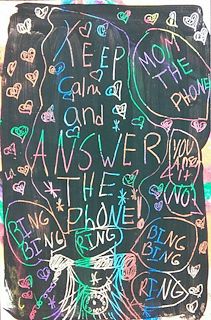 KEEP
calm
and
ANSWER
THE
PHONE
MOM
THE
PHONE
YOU
NO!
RING
BING
RING
BING
BING
RING